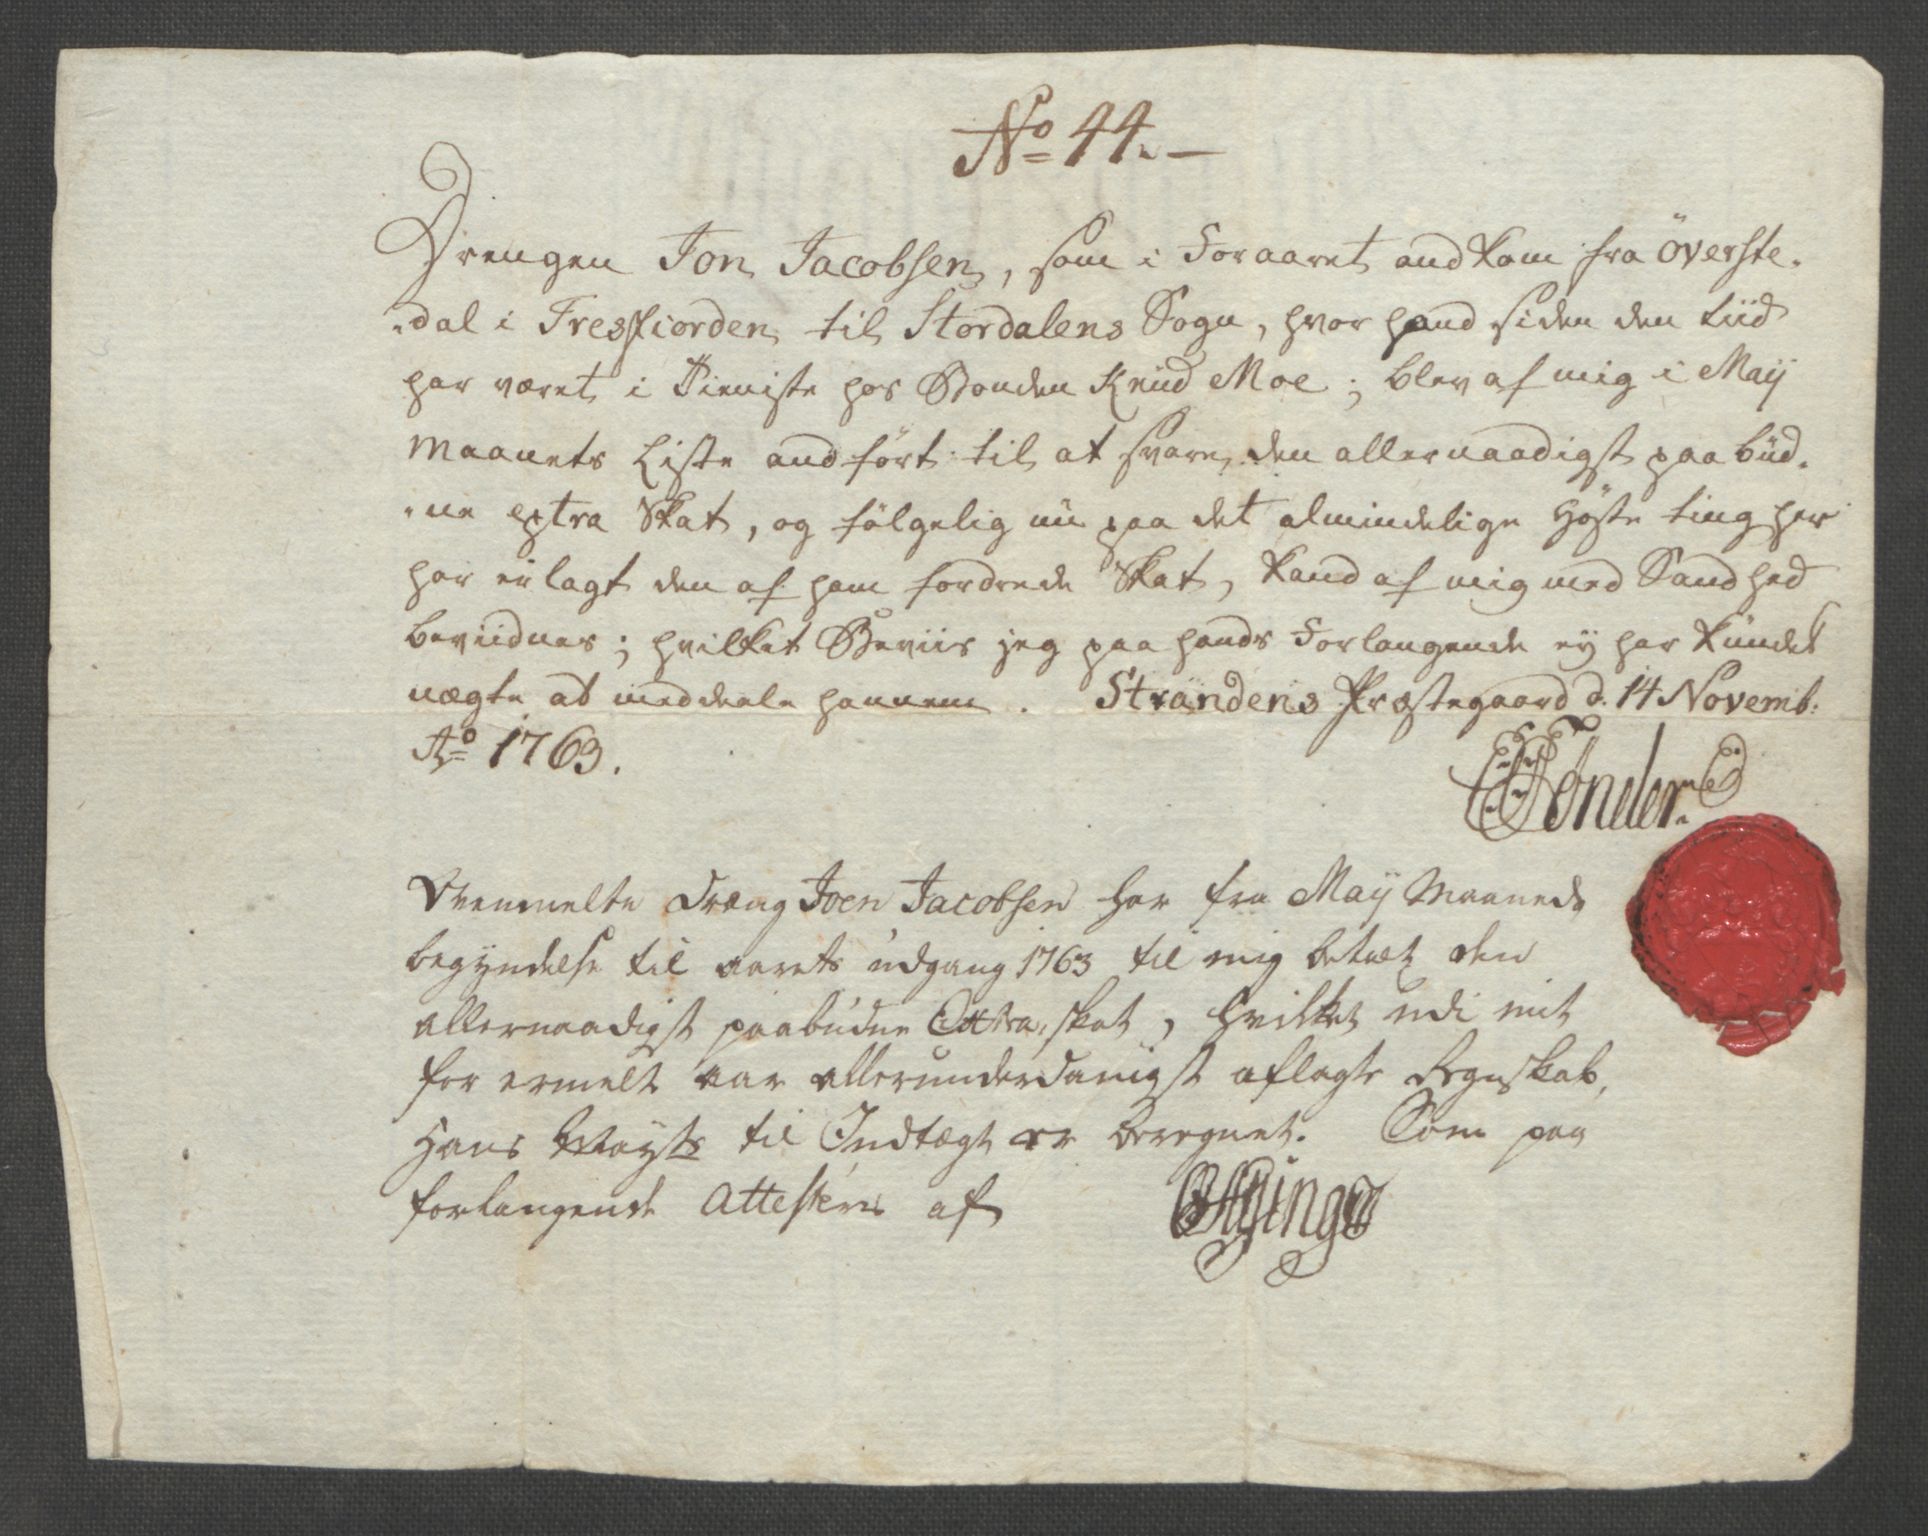 No 44.
Drengen Jon Jacobsen, som i Foraaret andkom fra Överste-
-dal i Fresfiorden til Stordalens Sogn, hvor hand siden den tiid
har været i Tieniste hos Bonden Knud Moe; blev af mig i Maij
Maanets Liste andfört til at svare den allernaadigst paabüd-
-ne extra Skat, og fölgelig nu paa det almindelige Höste ting her
har erlagt den af ham fordrede Skat, kand af mig med Sandhed
beviidnes; hvilket Beviis jeg paa hands Forlangende ey har kundet
nægte at meddeele hannem. Strandens Præstegaard d. 14 Novemb:
Ao 1763.
Tönder.
Ovenmelte Dræng Joen Jacobsen har fra Maij Maaneds
begyndelse til aarets udgang 1763 til mig betalt den
allernaadigst paabudne Extra skat, hvilket udi mit
for ermelt aar allerunderdanigst aflagte Regnskab,
Hans Mayts til Indtægt er beregnet. Som paa
forlangende Attesteris af